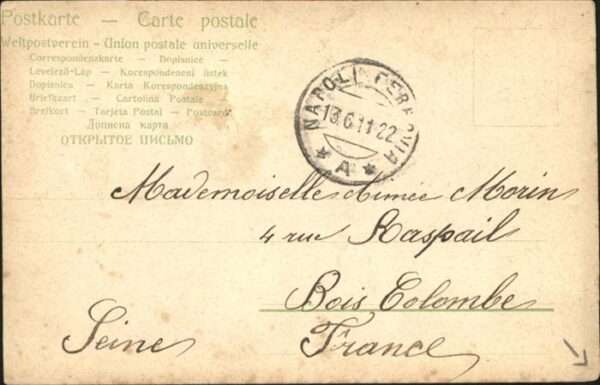 Postkarte — Carte postale
Weltpostverein – Union postale universelle
Correspondenzkarte — Dopisnice —
Levelező-Lap — Korespondencni listek
Dopisnica — Karta Korespondencyjna
Briefkaart — Cartolina Postale
Brefkort — Tarjeta Postal — Postcard
Дописна карта
ОТКРЫТОЕ ПИСЬМО
NAPOLI FERROVIA
13.6.11.22
* A *
Mademoiselle Aimée Morin
4 rue Raspail
Bois Colombe
Seine France